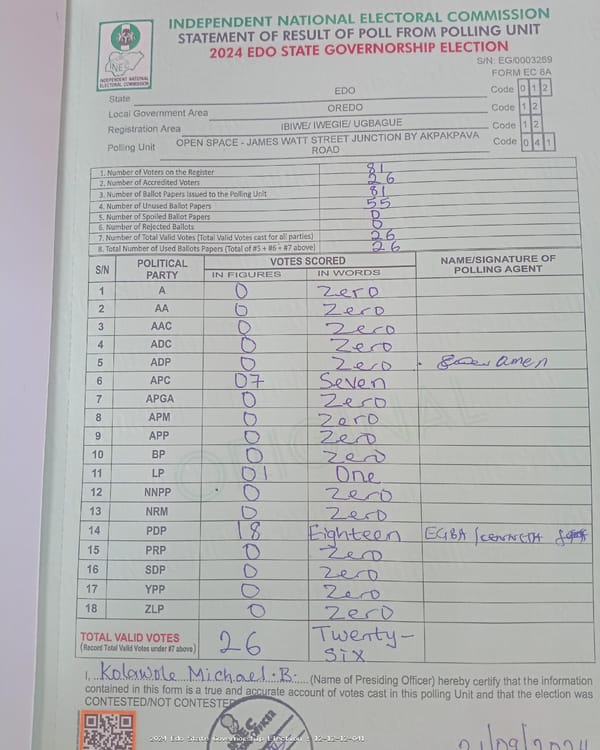 INDEPENDENT NATIONAL ELECTORAL COMMISSION
STATEMENT OF RESULT OF POLL FROM POLLING UNIT
2024 EDO STATE GOVERNORSHIP ELECTION
S/N: EG/0003269
FORM EC 8A
INEC
INDEPENDENT NATIONAL ELECTORAL COMMISSION
State EDO Code 0 1 2
Local Government Area OREDO Code 1 2
Registration Area IBIWE/ IWEGIE/ UGBAGUE Code 1 2
Polling Unit OPEN SPACE - JAMES WATT STREET JUNCTION BY AKPAKPAVA ROAD Code 0 4 1
1. Number of Voters on the Register 81
2. Number of Accredited Voters 26
3. Number of Ballot Papers Issued to the Polling Unit 81
4. Number of Unused Ballot Papers 55
5. Number of Spoiled Ballot Papers 0
6. Number of Rejected Ballots 0
7. Number of Total Valid Votes (Total Valid Votes cast for all parties) 26
8. Total Number of Used Ballots Papers (Total of #5 + #6 + #7 above) 26
S/N POLITICAL PARTY VOTES SCORED NAME/SIGNATURE OF POLLING AGENT
IN FIGURES IN WORDS
1 A 0 Zero
2 AA 0 Zero
3 AAC 0 Zero
4 ADC 0 Zero
5 ADP 0 Zero amen
6 APC 07 Seven
7 APGA 0 Zero
8 APM 0 Zero
9 APP 0 Zero
10 BP 0 Zero
11 LP 01 One
12 NNPP 0 Zero
13 NRM 0 Zero
14 PDP 18 Eighteen EGBA
15 PRP 0 Zero
16 SDP 0 Zero
17 YPP 0 Zero
18 ZLP 0 Zero
TOTAL VALID VOTES 26 Twenty-
(Record Total Valid Votes under #7 above) Six
I, Kolawole Michael .B. (Name of Presiding Officer) hereby certify that the information
contained in this form is a true and accurate account of votes cast in this polling Unit and that the election was
CONTESTED/NOT CONTESTED
2024 Edo State Governorship Election : 12-12-12-041